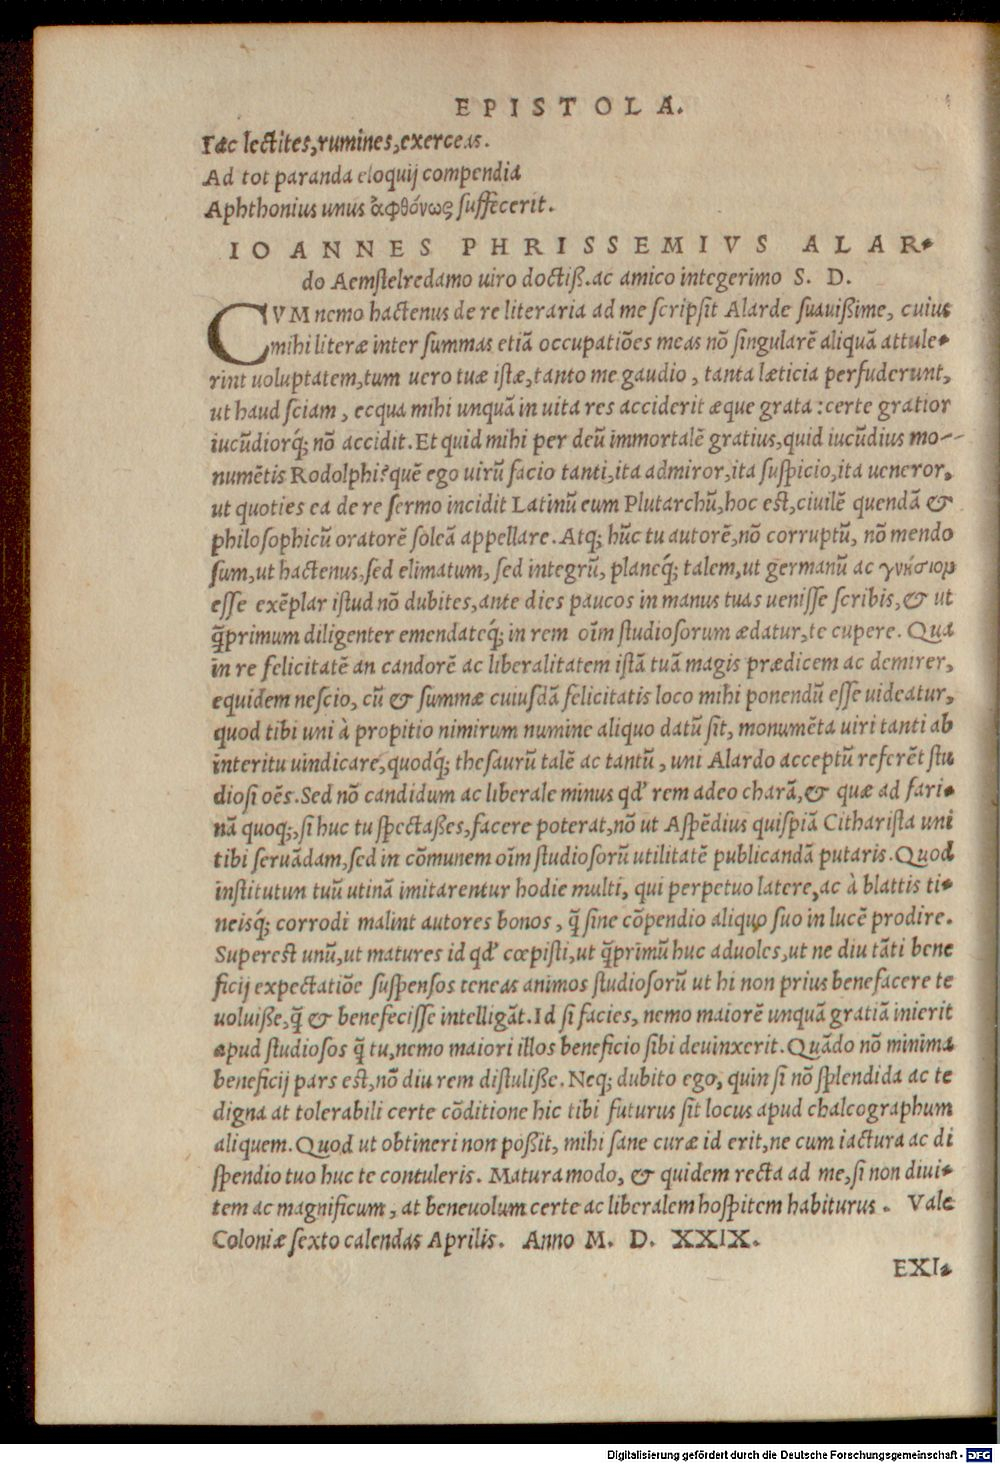 EPISTOLA.
Fac lectites, rumines, exerceas.
Ad tot paranda eloquij compendia
Aphthonius unus ἀφθόνως suffecerit.
IOANNES PHRISSEMIVS ALAR-
do Aemstelredamo uiro doctiß. ac amico integerimo S. D.
CVM nemo hactenus de re literaria ad me scripsit Alarde suauißime, cuius
mihi literæ inter summas etiã occupatiões meas nõ singularẽ aliquã attule-
rint uoluptatem, tum uero tuæ istæ, tanto me gaudio, tanta læticia perfuderunt,
ut haud sciam, ecqua mihi unquã in uita res acciderit æque grata: certe gratior
iucũdiorq́; nõ accidit. Et quid mihi per deũ immortalẽ gratius, quid iucũdius mo-
numẽtis Rodolphi? quẽ ego uirũ facio tanti, ita admiror, ita suspicio, ita ueneror,
ut quoties ea de re sermo incidit Latinũ eum Plutarchũ, hoc est, ciuilẽ quendã &
philosophicũ oratorẽ soleã appellare. Atq; hũc tu autorẽ, nõ corruptũ, nõ mendo
sum, ut hactenus, sed elimatum, sed integrũ, planeq́; talem, ut germanũ ac γνήσιομ
esse exẽplar istud nõ dubites, ante dies paucos in manus tuas uenisse scribis, & ut
q̃primum diligenter emendateq́; in rem oĩm studiosorum ædatur, te cupere. Qua
in re felicitatẽ an candorẽ ac liberalitatem istã tuã magis prædicem ac demirer,
equidem nescio, cũ & summæ cuiusdã felicitatis loco mihi ponendũ esse uideatur,
quod tibi uni à propitio nimirum numine aliquo datũ sit, monumẽta uiri tanti ab
interitu uindicare, quodq́; thesaurũ talẽ ac tantũ, uni Alardo acceptũ referẽt stu
diosi oẽs. Sed nõ candidum ac liberale minus qd' rem adeo charã, & quæ ad fari-
nã quoq;, si huc tu spectaßes, facere poterat, nõ ut Aspẽdius quispiã Citharista uni
tibi seruãdam, sed in cõmunem oĩm studiosorũ utilitatẽ publicandã putaris. Quod
institutun tuũ utinã imitarentur hodie multi, qui perpetuo latere, ac à blattis ti-
neisq́; corrodi malint autores bonos, q̃ sine cõpendio aliquo suo in lucẽ prodire.
Superest unũ, ut matures id qd' cœpisti, ut q̃primũ huc aduoles, ut ne diu tãti bene
ficij expectatiõe suspensos teneas animos studiosorũ ut hi non prius benefacere te
uoluiße, q̃ & benefecisse intelligãt. Id si facies, nemo maiorẽ unquã gratiã inierit
apud studiosos q̃ tu, nemo maiori illos beneficio sibi deuinxerit. Quãdo nõ minima
beneficij pars est, nõ diu rem distuliße. Neq; dubito ego, quin si nõ splendida ac te
digna at tolerabili certe cõditione hic tibi futurus sit locus apud chalcographum
aliquem. Quod ut obtineri non poßit, mihi sane curæ id erit, ne cum iactura ac di
spendio tuo huc te contuleris. Matura modo, & quidem recta ad me, si non diui-
tem ac magnificum, at beneuolum certe ac liberalem hospitem habiturus. Vale
Coloniæ sexto calendas Aprilis. Anno M. D. XXIX.
EXI-
Digitalisierung gefördert durch die Deutsche Forschungsgemeinschaft - DFG